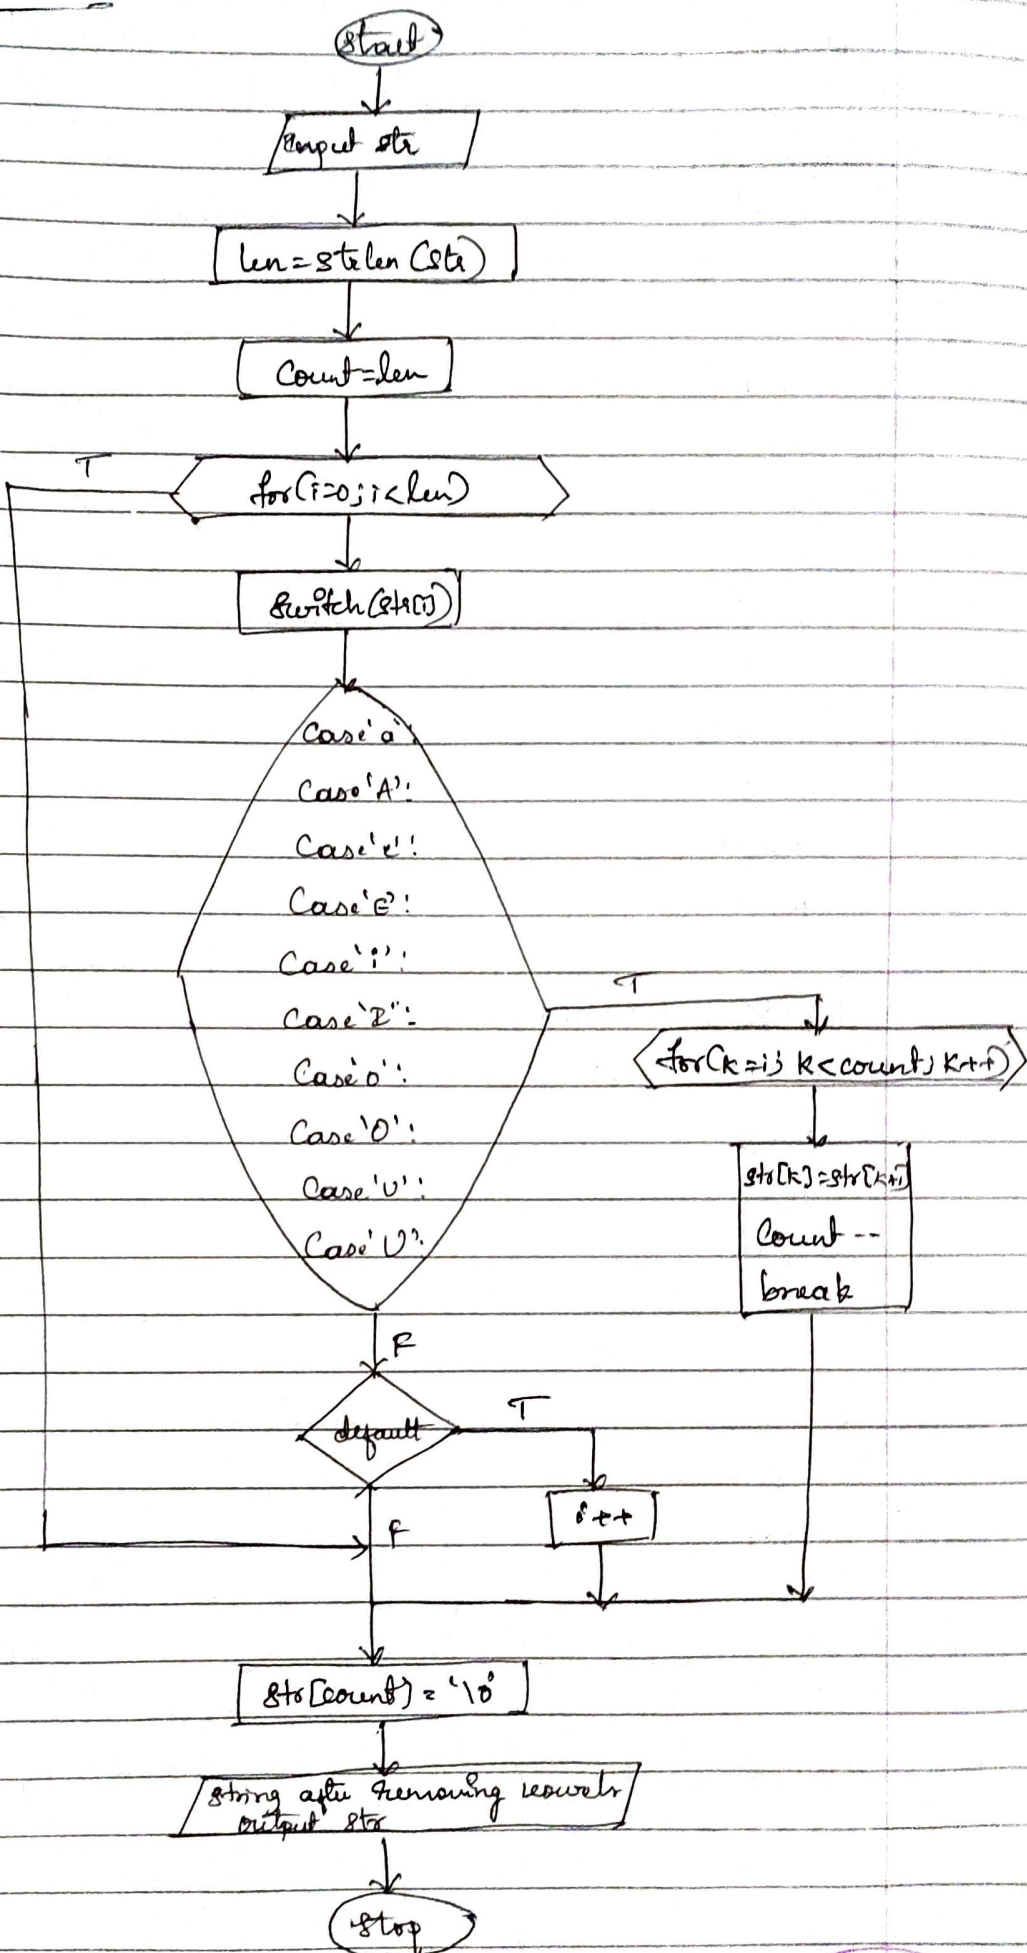 Start
Input str
len=strlen(str)
Count=len
T
for(i=0;i<len)
switch(str[i])
Case'a':
Case'A':
Case'e':
Case'E':
Case'i':
T
Case'I':
for(k=i; k<count; k++)
Case'o':
Case'O':
str[k]=str[k+1]
Case'u':
Count --
Case'U':
break
F
T
default
i++
F
str[count] = '\0'
string after removing vowels
output str
Stop